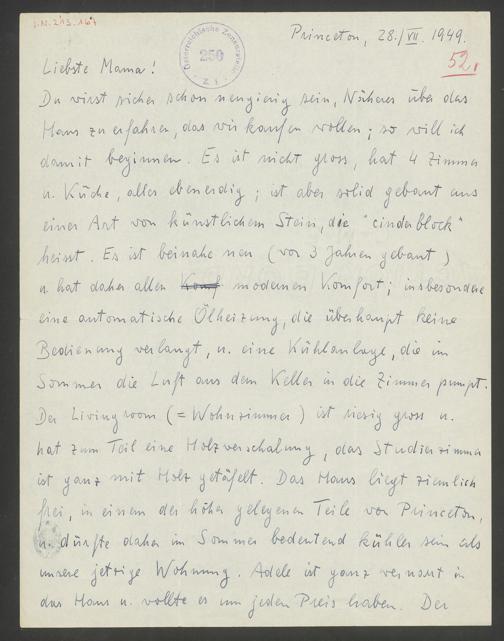 I.N. 213.167
Princeton, 28./VII. 1949.
Österreichische Zensurstelle
250
52.
Liebste Mama!
Du wirst sicher schon neugierig sein, Näheres über das
Haus zu erfahren, das wir kaufen wollen; so will ich
damit beginnen. Es ist nicht gross, hat 4 Zimmer
u. Küche, alles ebenerdig; ist aber solid gebaut aus
einer Art von künstlichem Stein, die "cinderblock"
heisst. Es ist beinahe neu (vor 3 Jahren gebaut)
u hat daher allen Komf modernen Komfort; insbesondere
eine automatische Ölheizung, die überhaupt keine
Bedienung verlangt, u. eine Kühlanlage, die im
Sommer die Luft aus dem Keller in die Zimmer pumpt.
Der Livingroom (= Wohnzimmer) ist riesig gross u.
hat zum Teil eine Holzverschalung, das Studierzimmer
ist ganz mit Holz getäfelt. Das Haus liegt ziemlich
frei, in einem der höher gelegenen Teile von Princeton,
u. dürfte daher im Sommer bedeutend kühler sein als
unsere jetzige Wohnung. Adele ist ganz vernarrt in
das Haus u. wollte es um jeden Preis haben. Der